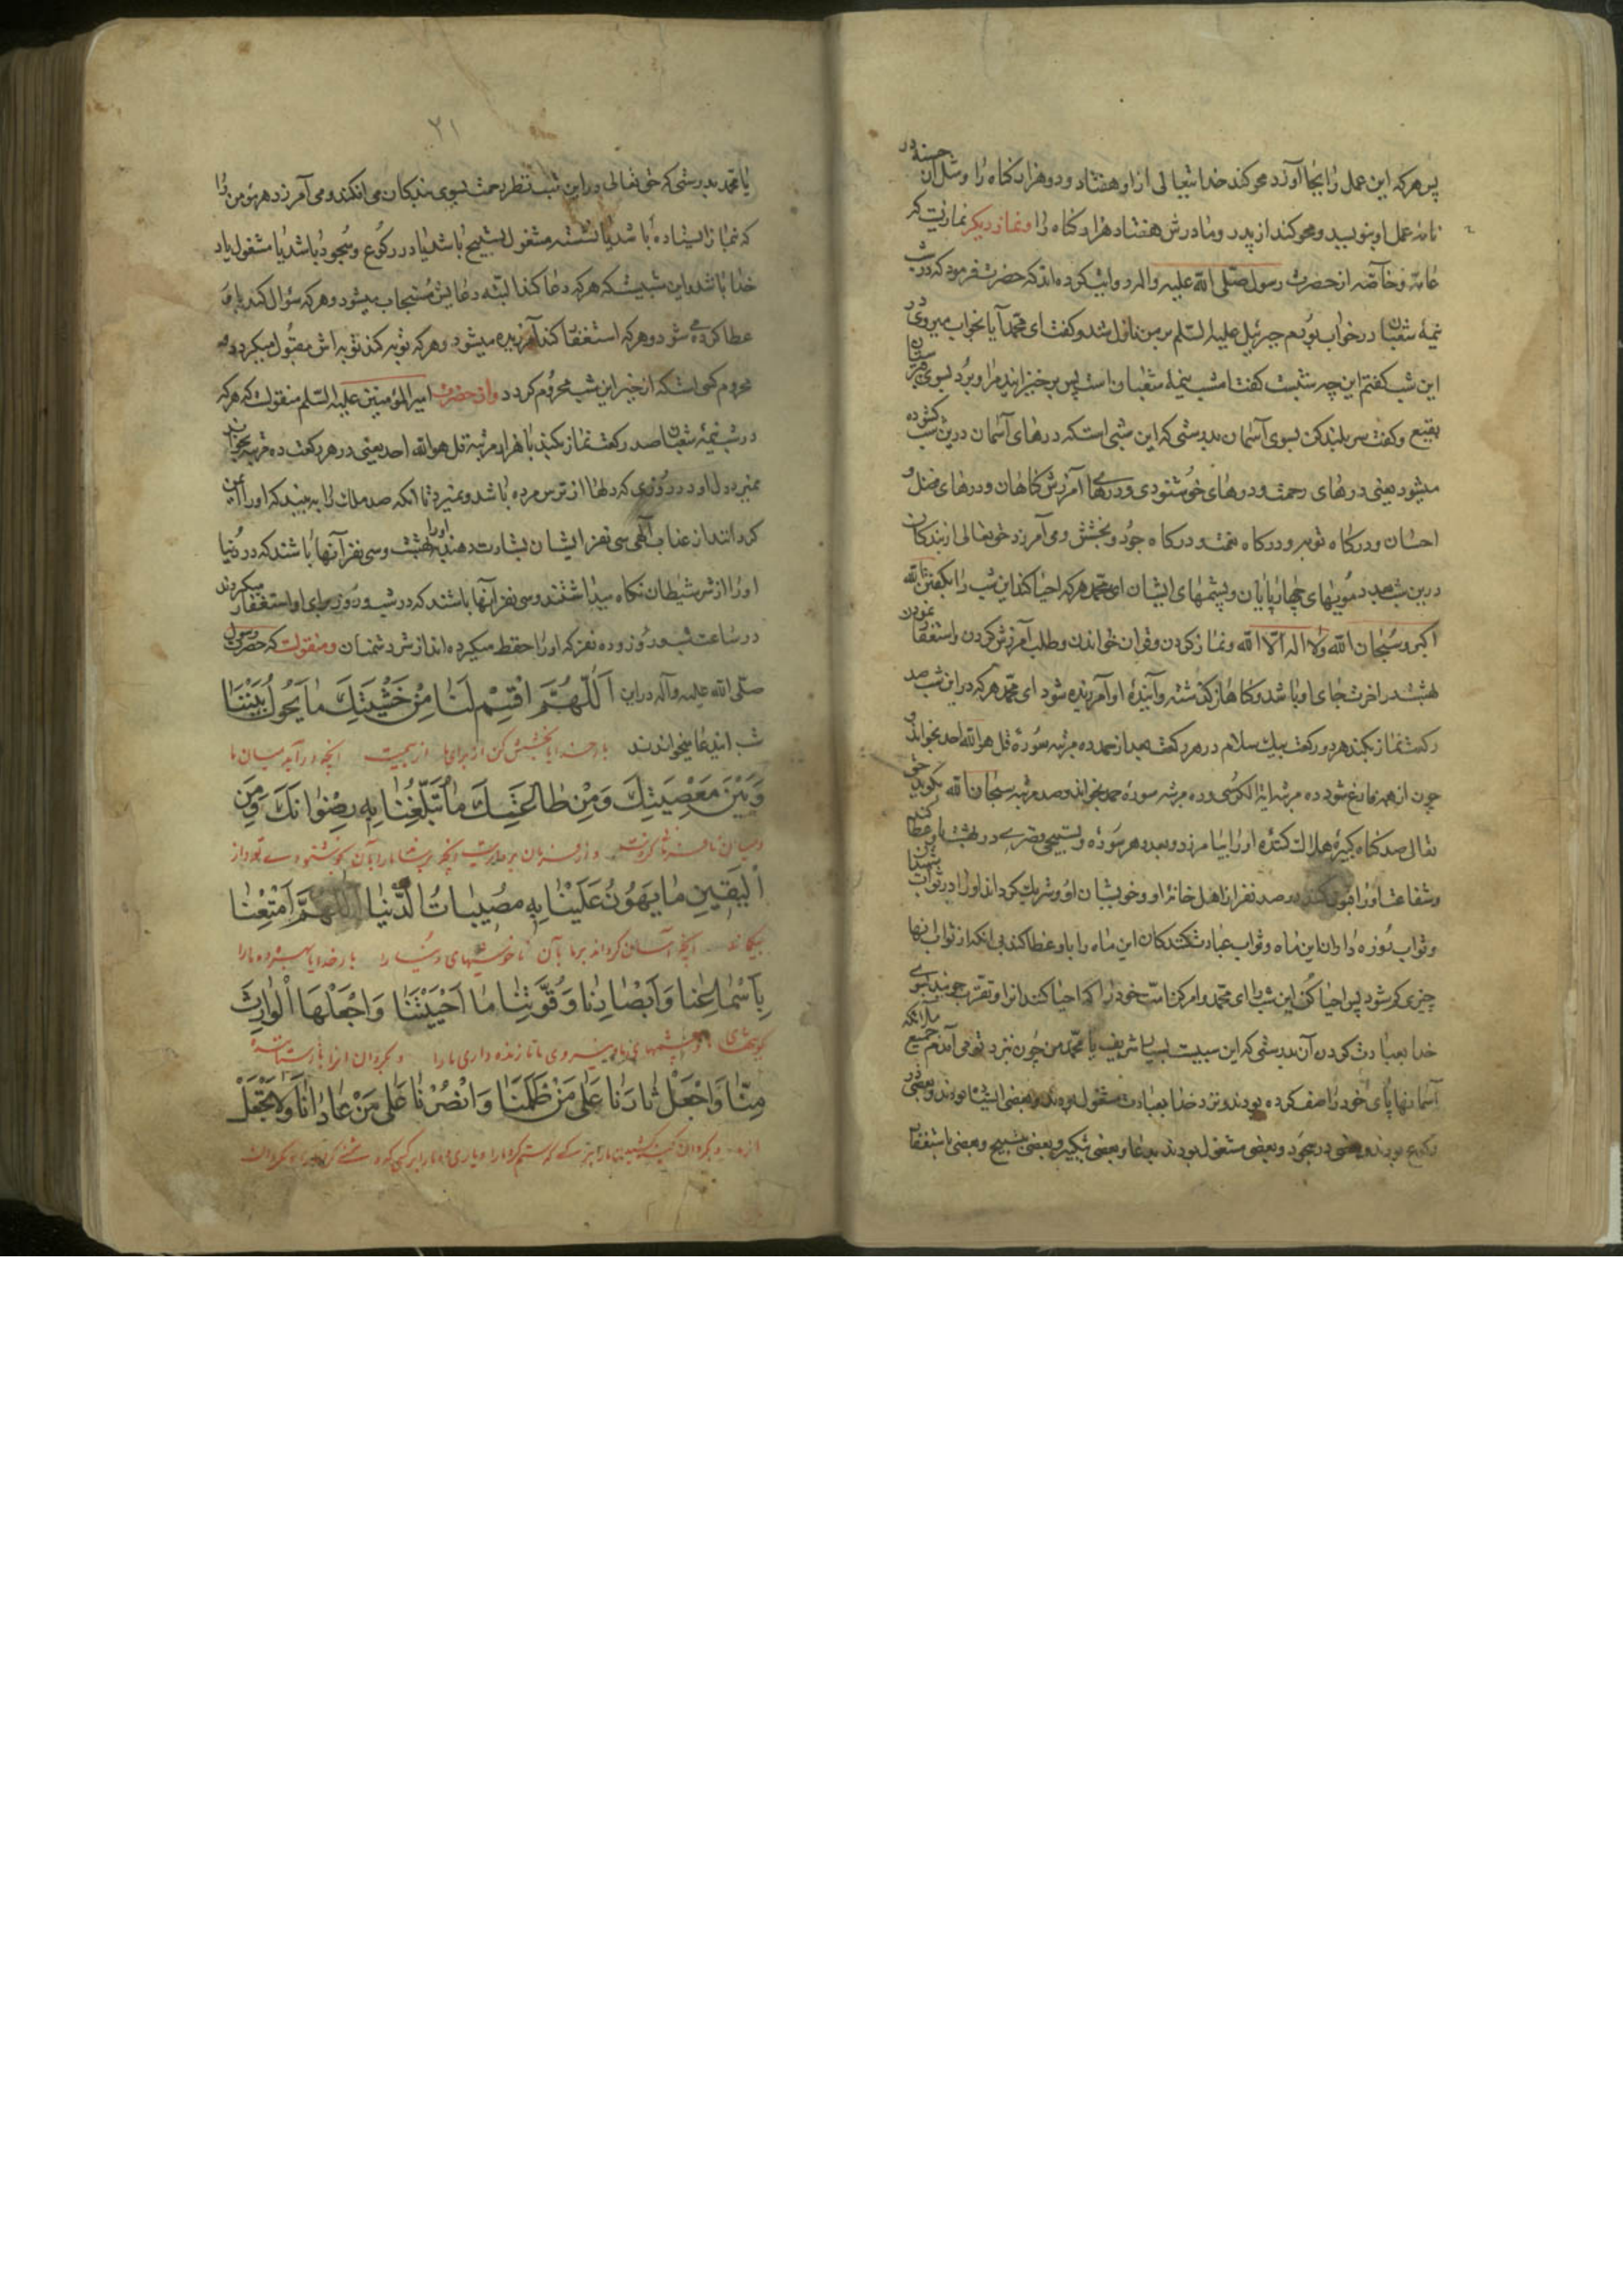 پس هرکه این عمل را بجا آورد محو کند خدایتعالی از او هفتاد و دو هزار کناه را و مثل آن حسنه در
نامهٔ عمل او بنویسد و محو کند از پدر و مادرش هفتاد هزار کناه را و نماز دیکر نمازیست که
عامه و خاصّه از حضرت رسول صلّی الله علیه و اله روایت کرده اند که حضرت فرمود که در شب
نیمهٔ شعبان در خواب بودم جبرئیل علیه السّلم بر من نازل شد و کفت ای محمّد آیا بخواب میروی در
این شب کفتم این چه شبست کفت امشب نیمهٔ شعبان است پس برخیزانید مرا و برد بسوی قبرستان
بقیع و کفت سر بلند کن بسوی آسمان بدرستی که این شبی است که درهای آسمان درین شب کشوده
میشود یعنی درهای رحمت و درهای خوشنودی و درهای آمرزش کناهان و درهای فضل و
احسان و درکاه توبه و درکاه نعمت و درکاه جود و بخشش و می آمرزد حقتعالی از بندکان
درین شب بعدد مویهای چهارپایان و پشمهای ایشان ای محمّد هرکه احیا کند این شب را بکفتن الله
اکبر و سبحان الله و لا اله الّا الله و نماز کردن و قران خواندن و طلب آمرزش کردن و استغفار نمودن
بهشت در اخرت جای او باشد و کناهان کذشته و آینده او آمرزیده شود ای محمّد هرکه در این شب صد
رکعت نماز بکند هر دو رکعت بیک سلام در هر رکعت بعد از حمد ده مرتبه سورهٔ قل هو الله احد بخواند و
چون از همه فارغ شود ده مرتبه ایة الکرسی و ده مرتبه سورهٔ حمد بخواند و صد مرتبه سبحان الله بکوید حق
تعالی صد کناه کبیرهٔ هلاک کننده او را بیامرزد و بعدد هر سوره و تسبیحی قصری در بهشت باو عطا کند
و شفاعت او را قبول کند در صد نفر از اهل خانهٔ او و خویشان او و شریک کرداند او را در ثواب شهیدان
و ثواب روزه داران این ماه و ثواب عبادت کنندکان این ماه را باو عطا کند بی انکه از ثواب انها
چیزی کم شود پس احیا کن این شب را ای محمّد و امر کن امّت خود را که احیا کنند انرا و تقرّب جویند بسوی
خدا بعبادت کردن آن بدرستی که این شبیست بسیار شریف یا محمّد من چون نزد تو می آمدم جمیع ملائکه
آسمانها پای خود را صف کرده بودند و نزد خدا بعبادت مشغول بودند بعضی ایستاده بودند و بعضی در
رکوع بودند و بعضی در سجود و بعضی مشغول بودند بدعا و بعضی بتکبیر و بعضی بتسبیح و بعضی باستغفار
۲۱
یا محمّد بدرستی که حق تعالی در این شب نظر رحمت بسوی بندکان می افکند و می آمرزد هر مؤمن را
که بنماز ایستاده باشد یا نشسته مشغول تسبیح باشد یا در رکوع و سجود باشد یا مشغول یاد
خدا باشد این شبیست که هرکه دعا کند البتّه دعایش مستجاب میشود و هرکه سؤال کند باو
عطا کرده می شود و هرکه استغفار کند آمرزیده میشود و هرکه توبه کند توبه اش مقبول میکردد و
محروم کسی است که از خیر این شب محروم کردد و از حضرت امیر المؤمنین علیه السّلم منقولست که هرکه
در شب نیمهٔ شعبان صد رکعت نماز بکند با هزار مرتبه قل هو الله احد یعنی در هر رکعت ده مرتبه بخواند
نمیرد دل او در روزی که دلها از ترس مرده باشد و نمیرد تا انکه صد ملک را به بیند که او را ایمن
کردانند از عذاب آلهی سی نفر ایشان بشارت دهند او را ببهشت و سی نفر آنها باشند که در دنیا
او را از شر شیطان نکاه میداشتند و سی نفر آنها باشند که در شب و روز برای او استغفار میکردند
در ساعت شب و روز و ده نفر که او را حفظ میکرده اند از شرّ دشمنان و منقولست که حضرت رسول
صلّی الله علیه و آله در این اَللّهُمَّ اقْسِمْ لَنا مِنْ خَشْیَتِكَ ما یَحُولُ بَیْنَنا
شب ایندعا میخواندند بار خدایا بخشش کن از برای ما از بیمت انچه در آید میان ما
وَبَیْنَ مَعْصِیَتِكَ وَمِنْ طاعَتِكَ ما تُبَلِّغُنا بِهِ رِضْوانَكَ وَمِنَ
و میان نافرمانی کردنت و از فرمان برداریت انچه برساند ما را بآن بخوشنودی تو و از
الْیَقینِ ما یَهُونُ عَلَیْنا بِهِ مُصیباتُ الدُّنْیا اَللّهُمَّ اَمْتِعْنا
انچه آسان کرداند بر ما بآن ناخوشیهای دنیا را بار خدایا بهره ده ما را
بِاَسْماعِنا وَاَبْصارِنا وَقُوَّتِنا ما اَحْیَیْتَنا وَاجْعَلْهَا الْوارِثَ
کوشهای ما و چشمهای ما و نیروی ما تا زنده داری ما را و بکردان انرا
مِنّا وَاجْعَلْ ثارَنا عَلی مَنْ ظَلَمَنا وَانْصُرْنا عَلی مَنْ عادانا وَلا تَجْعَلْ
از ما و بکردان ما را بر کسی که ستم کرد ما را و یاری ده ما را بر کسی که دشمنی کرد